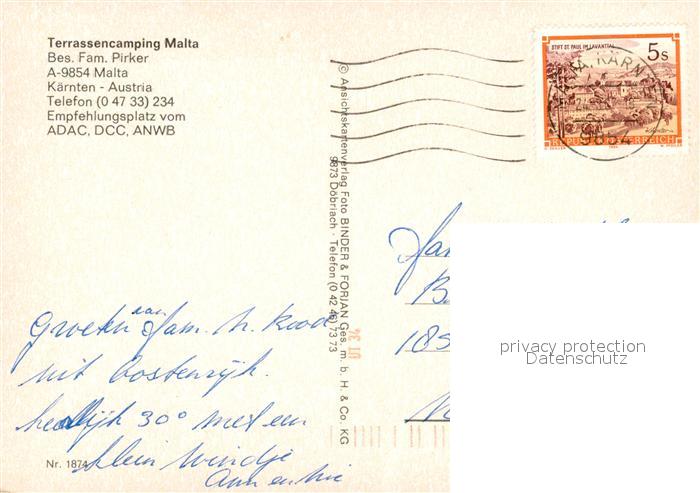 Terrassencamping Malta
Bes. Fam. Pirker
A-9854 Malta
Kärnten - Austria
Telefon (0 47 33) 234
Empfehlungsplatz vom
ADAC, DCC, ANWB
© Ansichtskartenverlag Foto BINDER & FORIAN Ges. m. b. H. & Co. KG
9873 Döbriach · Telefon (0 42 46) 73 73
STIFT ST. PAUL IM LAVANTTAL
5s
REPUBLIK ÖSTERREICH
9854
Groeten aan fam. h. Rood
uit Oostenrijk.
heerlijk 30° met een
klein windje
Nr. 1874
Fam
B
185
privacy protection
Datenschutz